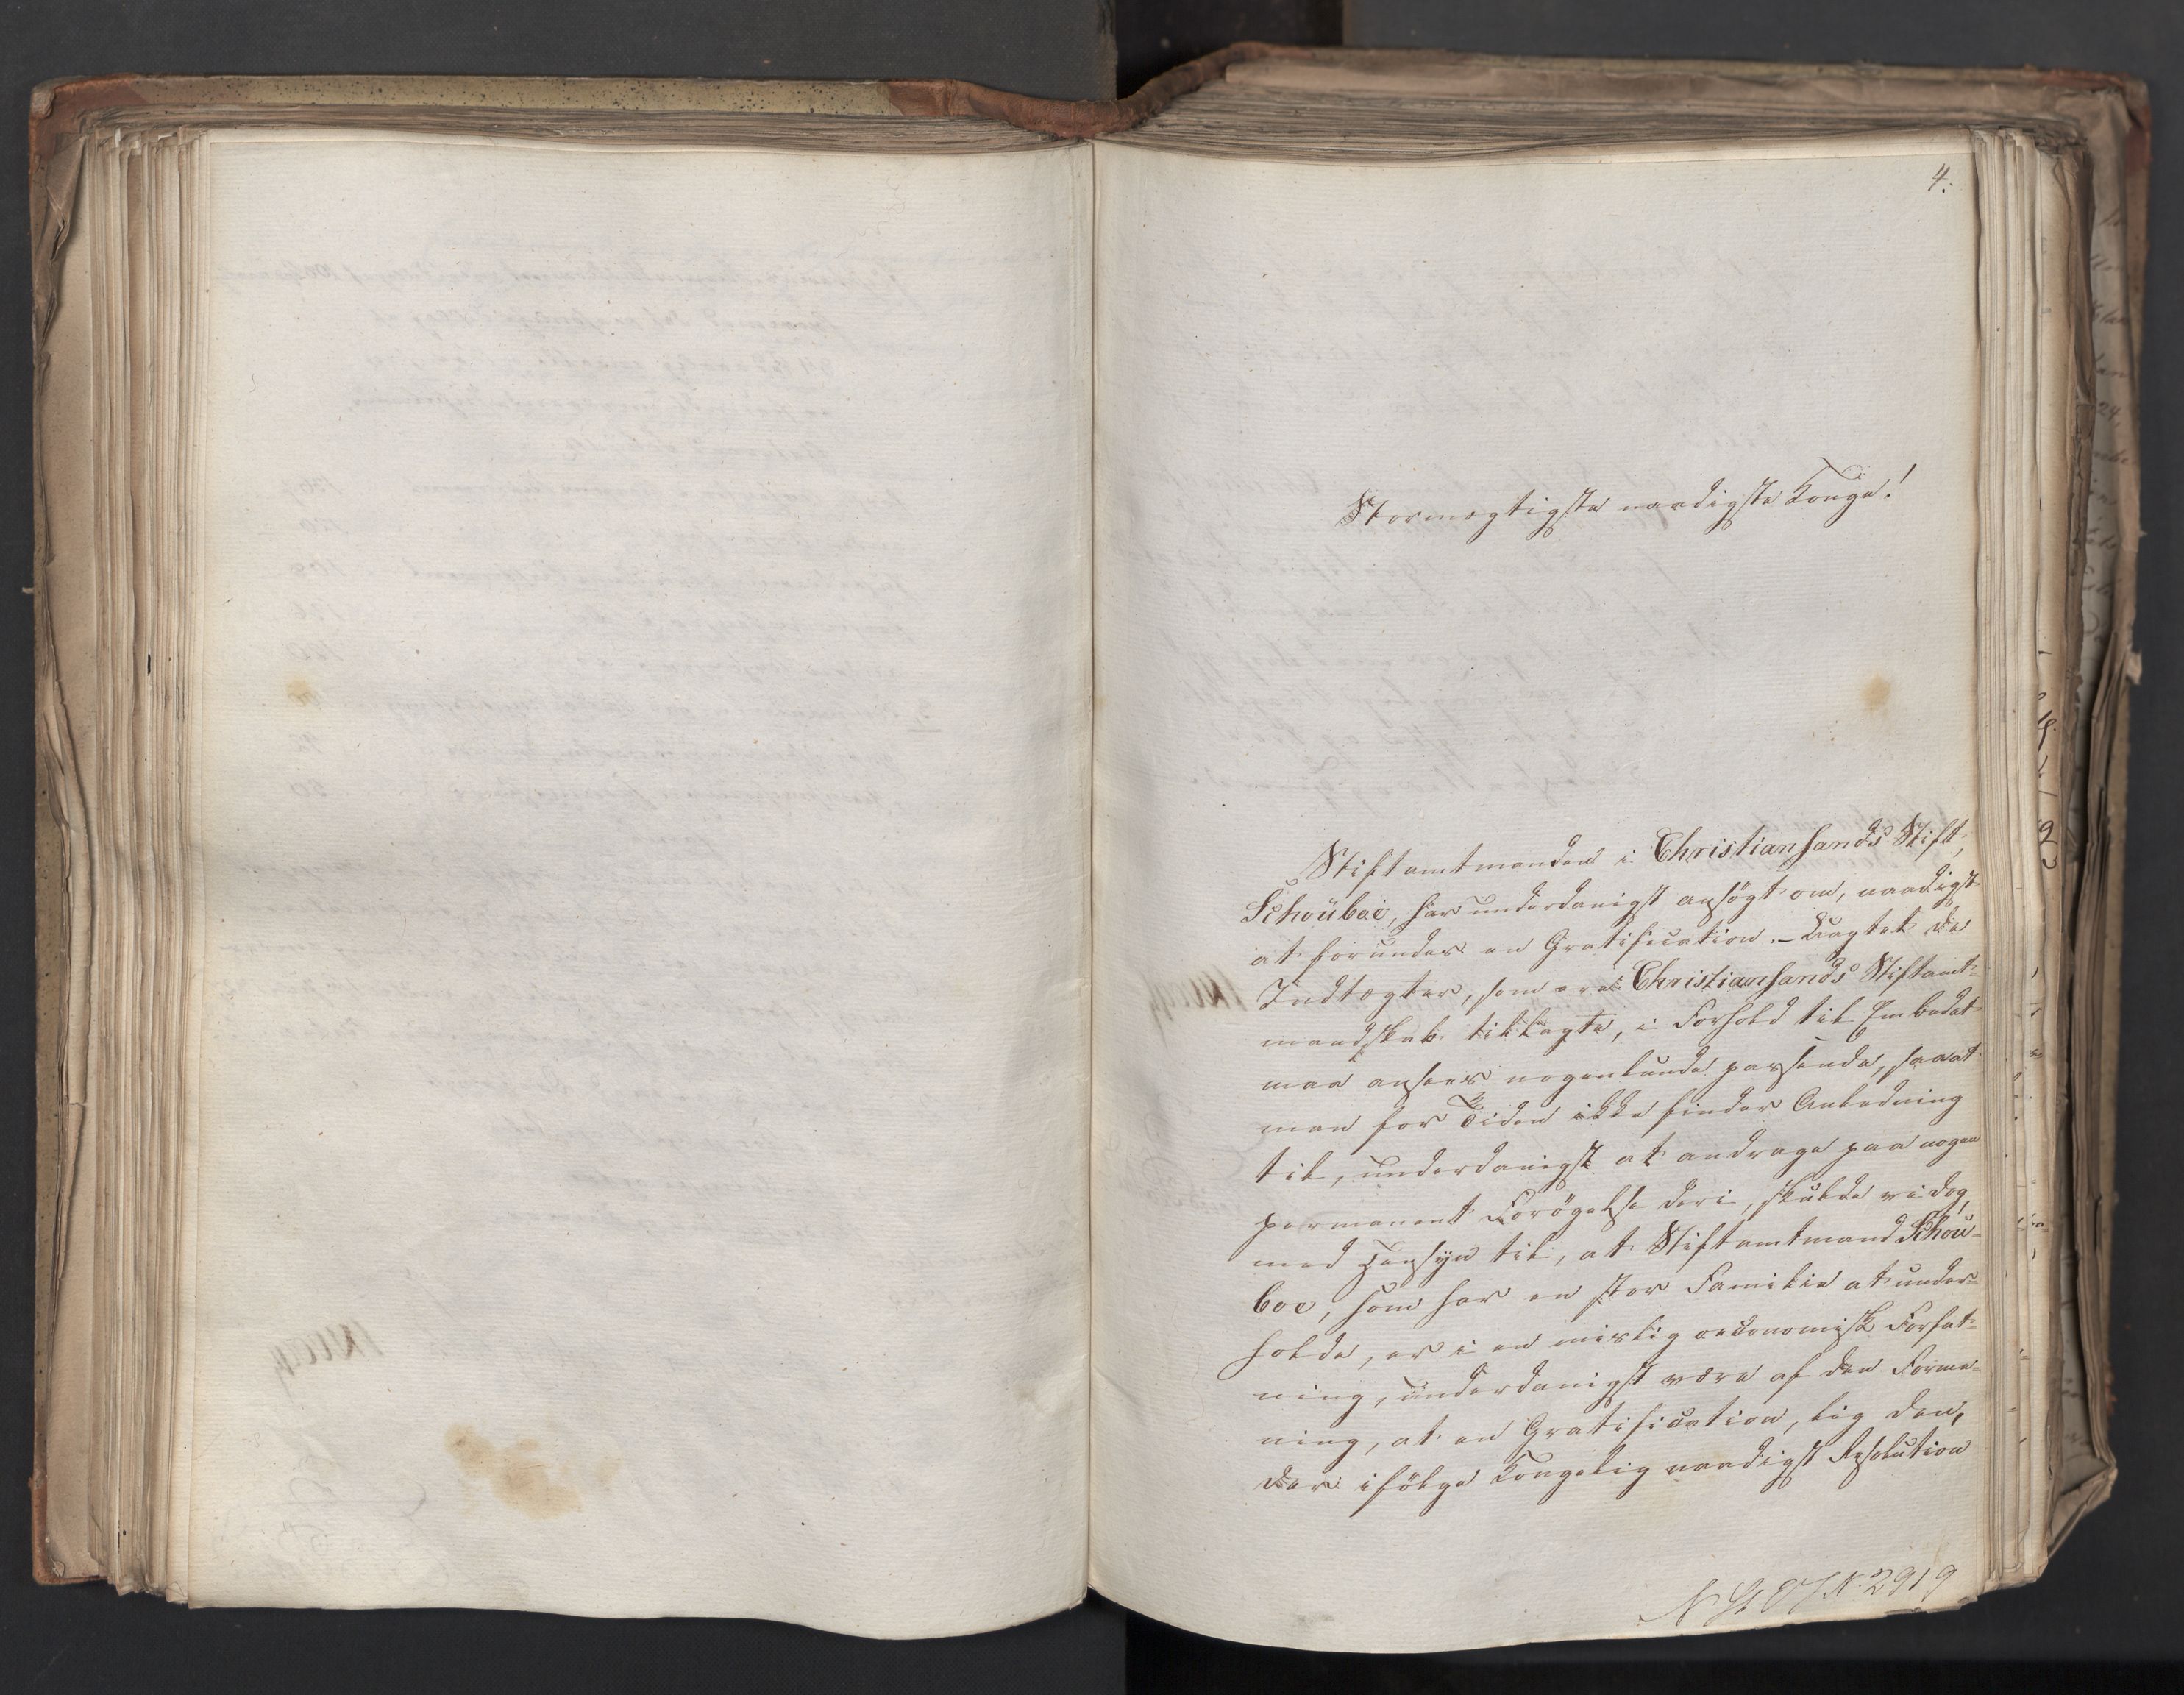 4.
Stormægtigste naadigste Konge!
Stiftamtmanden i Christiansands Stift,
Schouboe, har underdanigst ansøgt om, naadigst
at forundes en Gratification. – Uagtet de
Indtægter, som ere Christiansands Stiftamt-
mandskab tillagte, i Forhold til Embedet
maa ansees nogenlunde passende, saa at
man for Tiden ikke finder Anledning
til, underdanigst at andrage paa nogen
permanent Forøgelse deri, skulde vi dog,
med Hensyn til, at Stiftamtmand Schou-
boe, som har en stor Familie at under-
holde, er i en mislig oeconomisk Forfat-
ning, underdanigst være af den Forme-
ning, at en Gratification, lig den,
der ifølge Kongelig naadigst Resolution
N. 2919